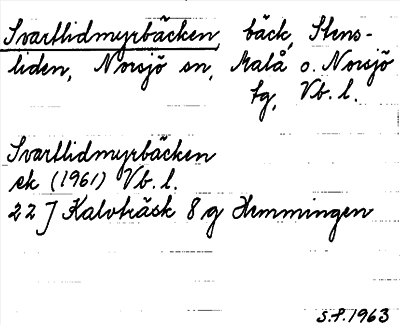 Svartlidmyrbäcken, bäck, Stens-
liden, Norsjö sn, Malå o. Norsjö
tg, Vb. l.
Svartlidmyrbäcken
ek (1961) Vb. l.
22 J Kalvträsk 8 g Hemmingen
S.P. 1963